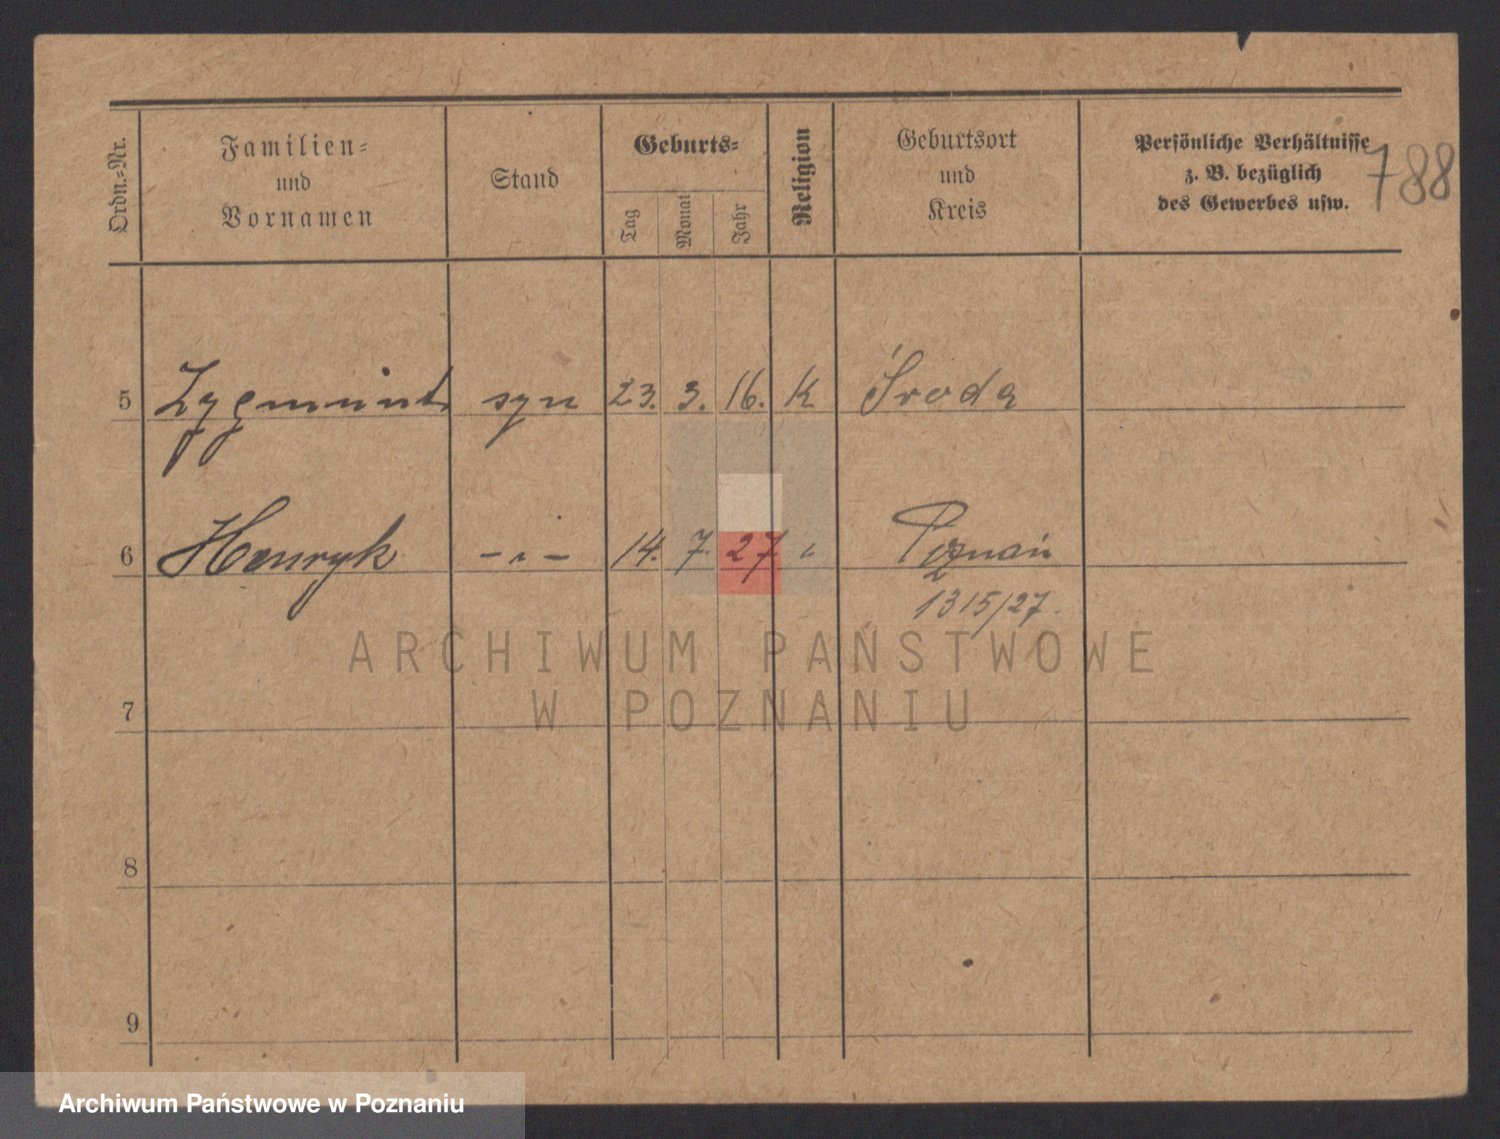 Ordn.-Nr.
Familien-
und
Vornamen
Stand
Geburts-
Tag
Monat
Jahr
Religion
Geburtsort
und
Kreis
Persönliche Verhältnisse
z. B. bezüglich
des Gewerbes usw.
788
5 Zygmunt syn 23. 3. 16. K Środa
6 Henryk -„- 14. 7. 27 „ Poznań
1315/27.
ARCHIWUM PAŃSTWOWE
W POZNANIU
7
8
9
Archiwum Państwowe w Poznaniu